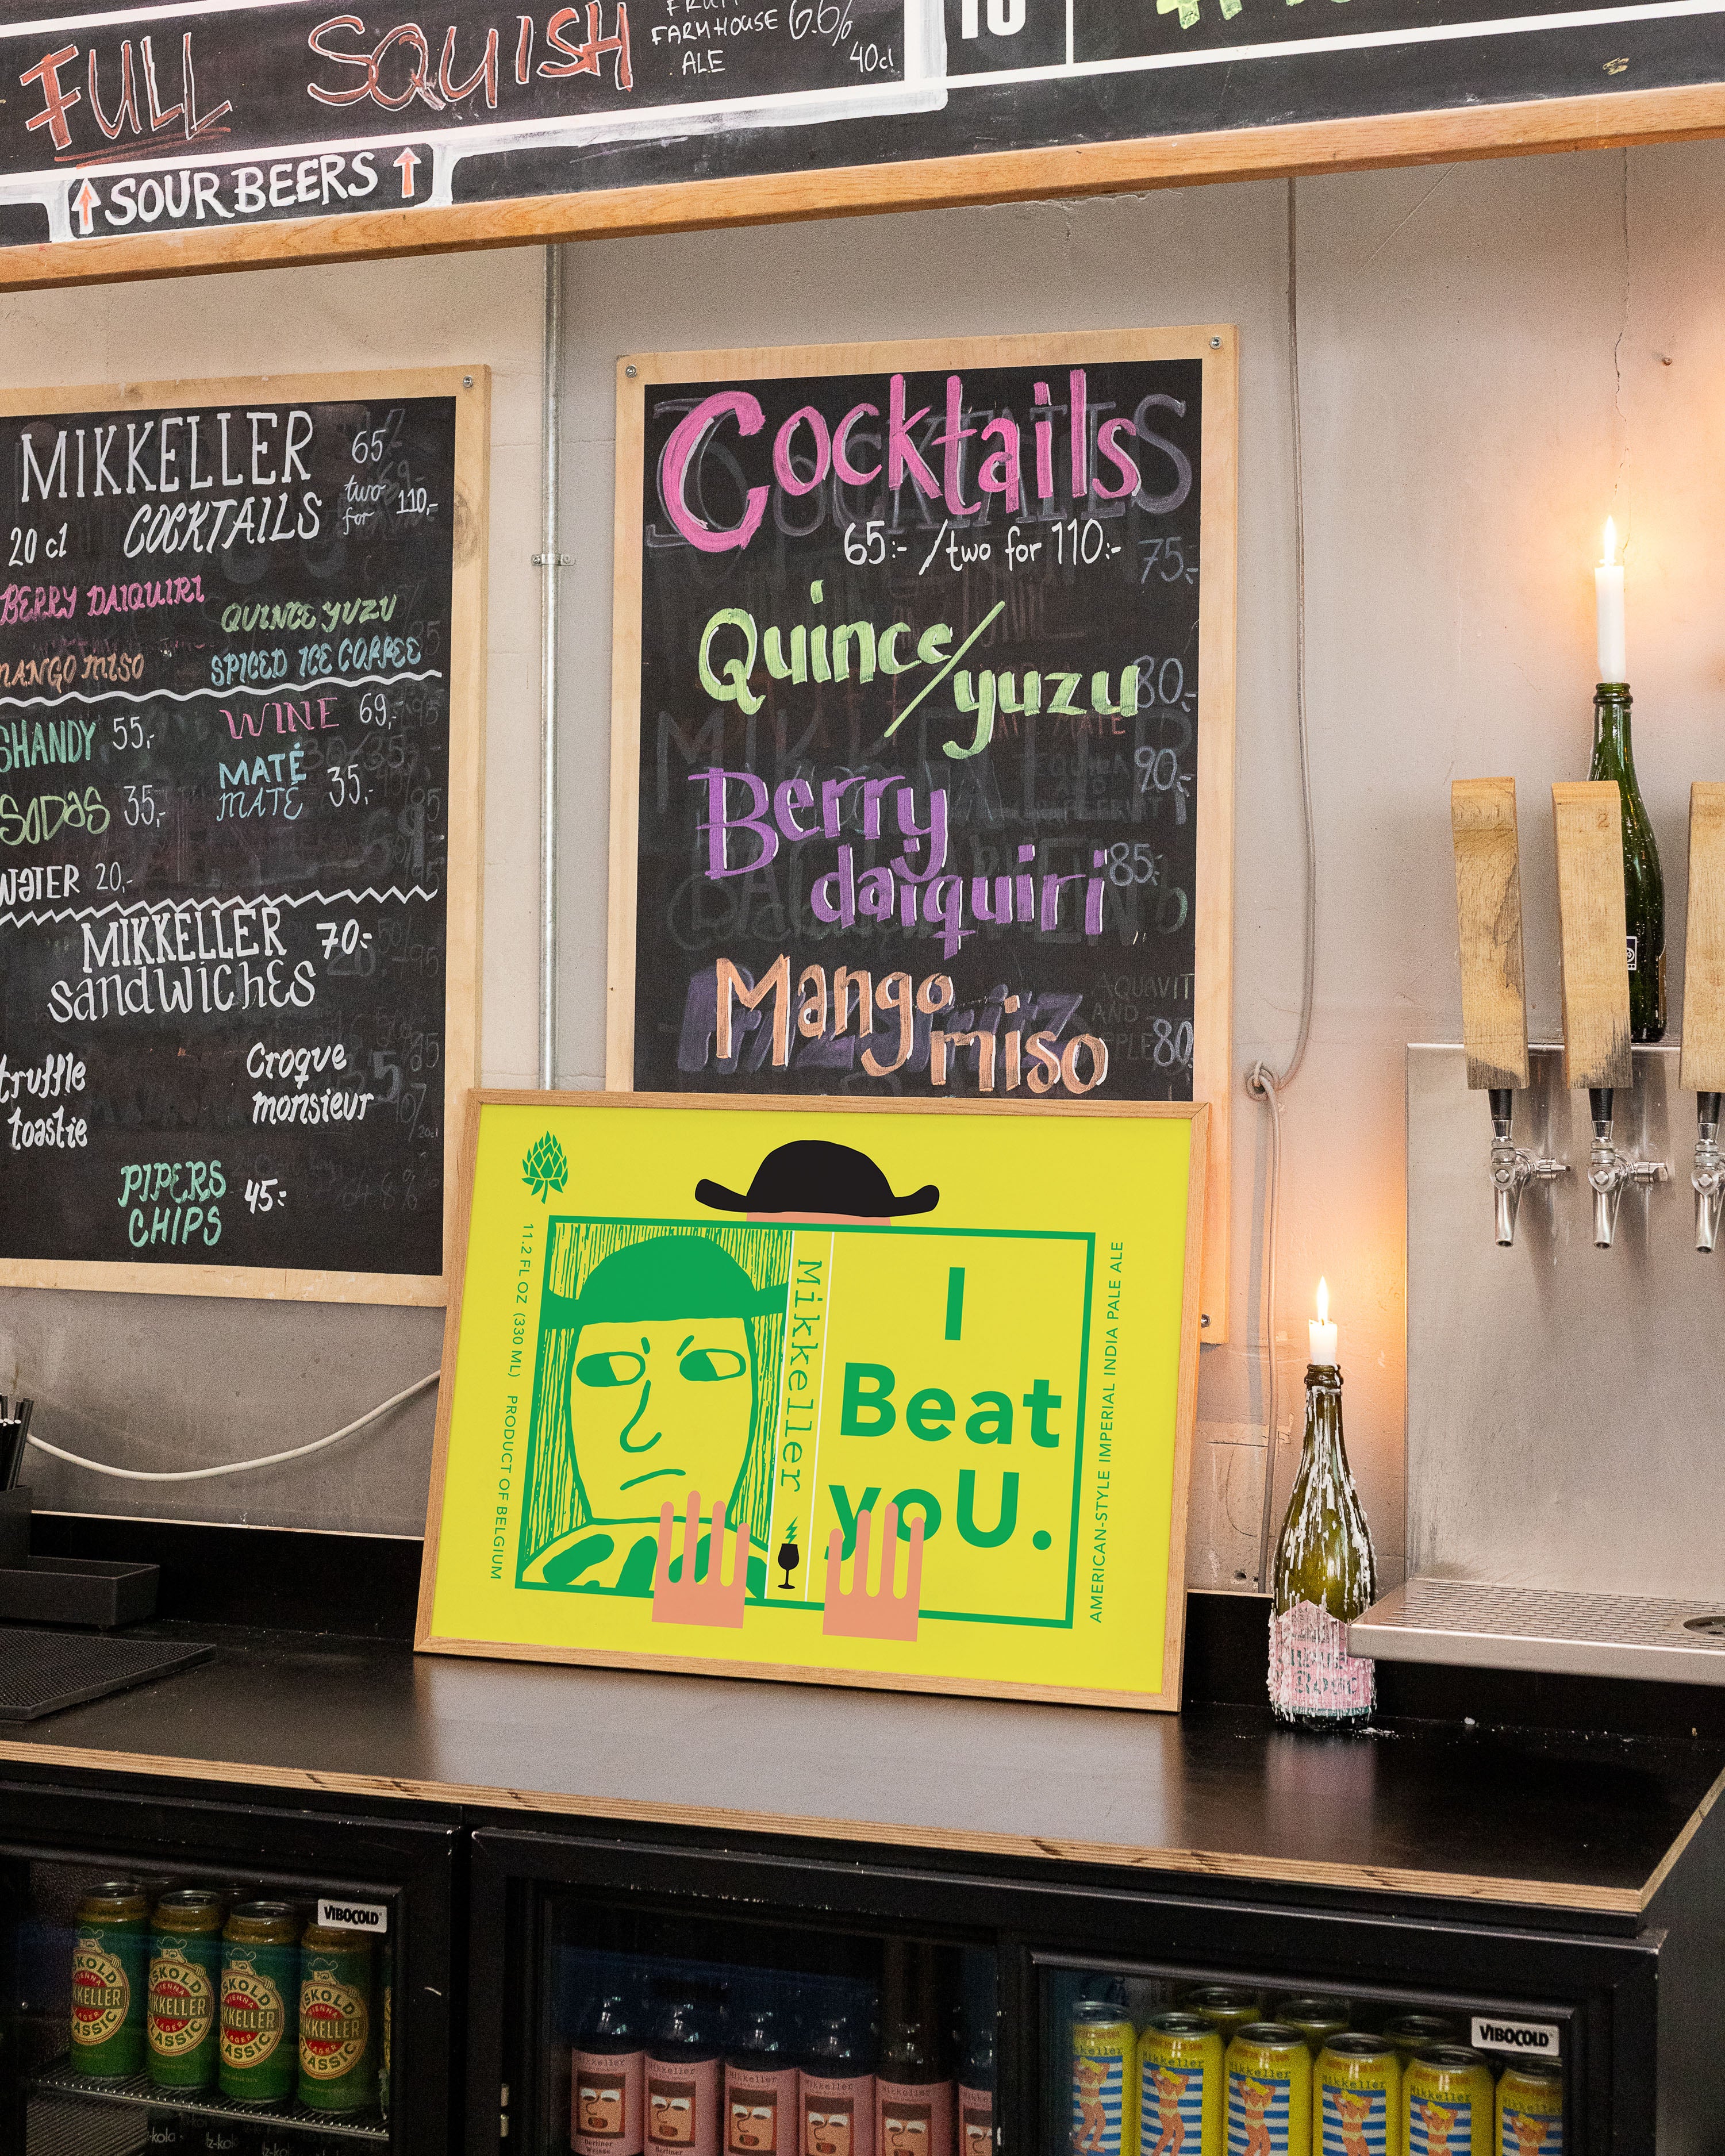 FULL SQUISH
FRUIT
FARMHOUSE 6.6%
ALE 40cl
10
↑ SOUR BEERS ↑
MIKKELLER 65
COCKTAILS two for 110,-
20 cl
BERRY DAIQUIRI
QUINCE YUZU
MANGO MISO
SPICED ICE COFFEE
SHANDY 55,-
WINE 69,-
SODAS 35,-
MATÉ
MATÉ 35,-
WATER 20,-
MIKKELLER 70:-
SANDWICHES
truffle
toastie
Croque
monsieur
PIPERS
CHIPS 45:-
Cocktails
65:- / two for 110:-
75:-
Quince/
yuzu
80,-
90,-
Berry
daiquiri
85:-
Mango
miso
AQUAVIT
AND
80
11.2 FL OZ (330 ML) PRODUCT OF BELGIUM
Mikkeller
I
Beat
yoU.
AMERICAN-STYLE IMPERIAL INDIA PALE ALE
2
VIBOCOLD
VIBOCOLD
ISKOLD
VIENNA
MIKKELLER
LAGER
CLASSIC
Mikkeller
Berliner
Weisse
Mikkeller